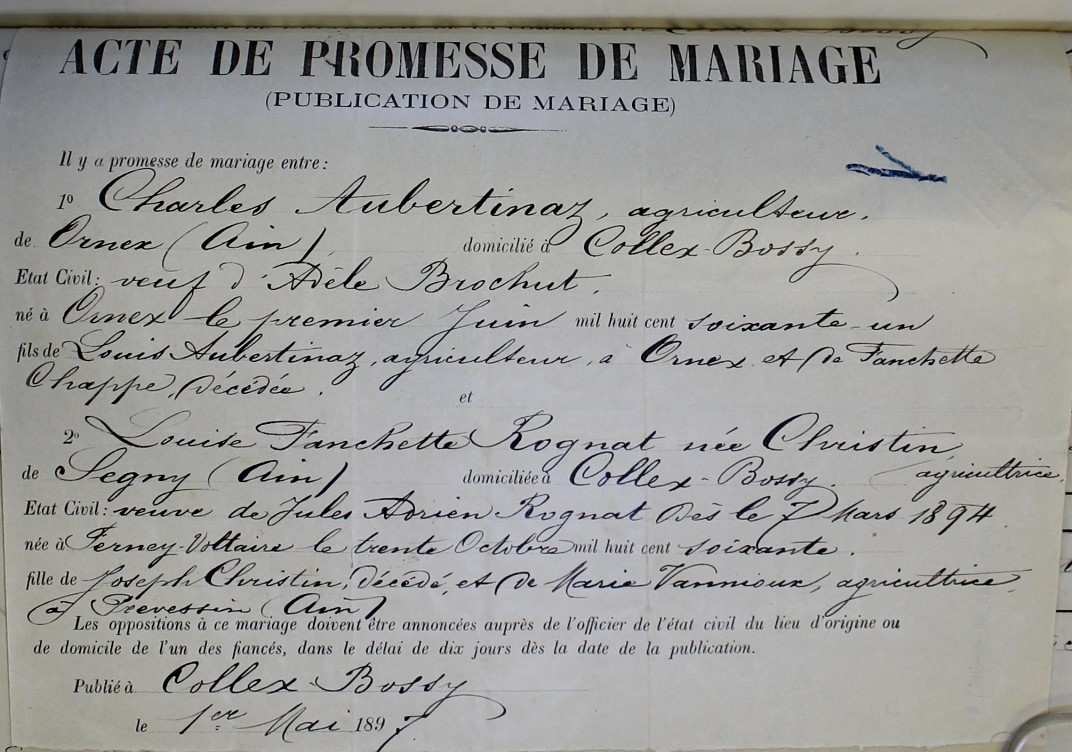 ACTE DE PROMESSE DE MARIAGE
(PUBLICATION DE MARIAGE)
Il y a promesse de mariage entre:
1º Charles Aubertinaz, agriculteur.
de Ornex (Ain) domicilié à Collex-Bossy.
Etat Civil: veuf d'Adèle Brochut.
né à Ornex le premier Juin mil huit cent soixante-un
fils de Louis Aubertinaz, agriculteur, à Ornex et de Fanchette
Chappe, décédée.
et
2º Louise Fanchette Rognat née Christin,
agricultrice.
de Segny (Ain) domiciliée à Collex-Bossy.
Etat Civil: veuve de Jules Adrien Rognat dès le 7 Mars 1894.
née à Ferney-Voltaire le trente Octobre mil huit cent soixante.
fille de Joseph Christin, décédé, et de Marie Vannioux, agricultrice
à Prevessin (Ain)
Les oppositions à ce mariage doivent être annoncées auprès de l'officier de l'état civil du lieu d'origine ou
de domicile de l'un des fiancés, dans le délai de dix jours dès la date de la publication.
Publié à Collex-Bossy
le 1er Mai 1897